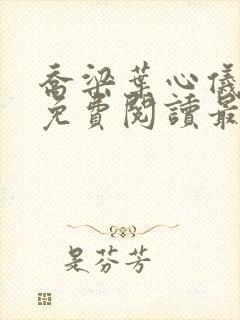 喬梁葉心儀
免費閱讀最
是芬芳